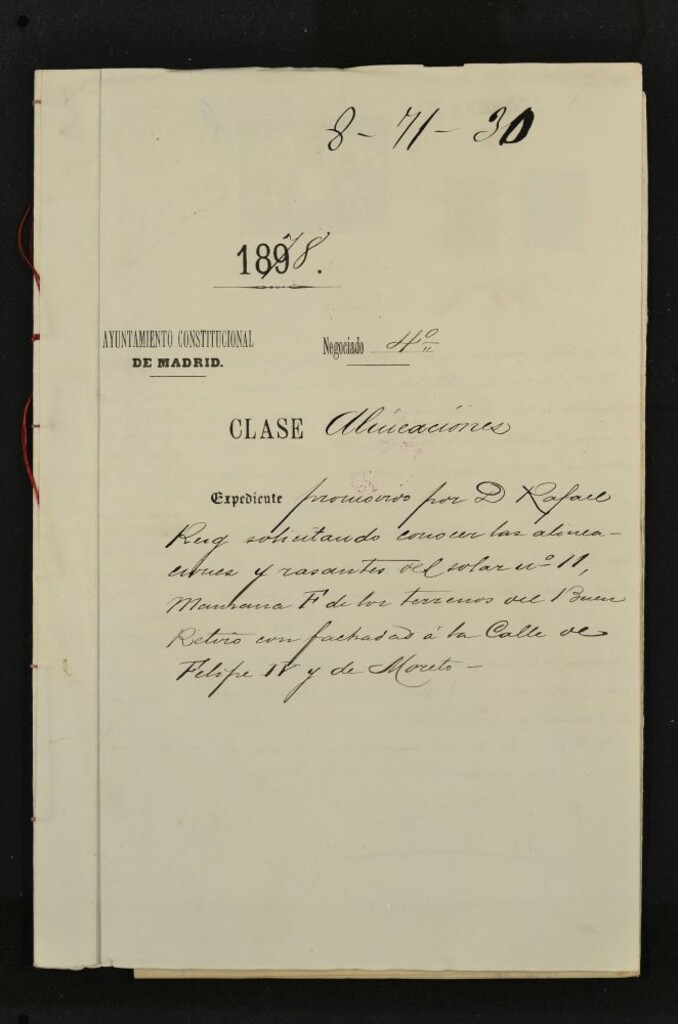 8-71-30
1898.
AYUNTAMIENTO CONSTITUCIONAL
DE MADRID.
Negociado 4º
CLASE Alineaciones
Expediente promovido por D Rafael
Reig solicitando conocer las alinea-
ciones y rasantes del solar nº 11,
Manzana F de los terrenos del Buen
Retiro con fachadas á la Calle de
Felipe IV y de Moreto-